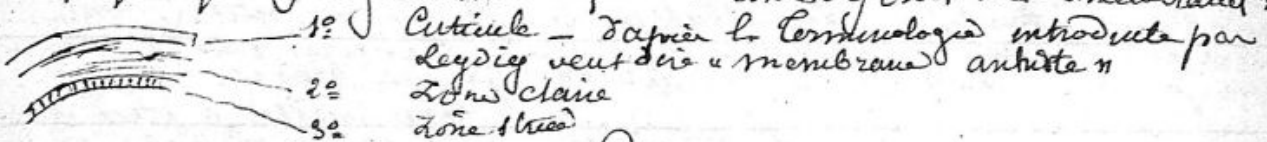 1º Cuticule – d'après la Terminologie introduite par
Leydig veut dire « membrane anhiste »
2º Zone claire
3º Zone striée